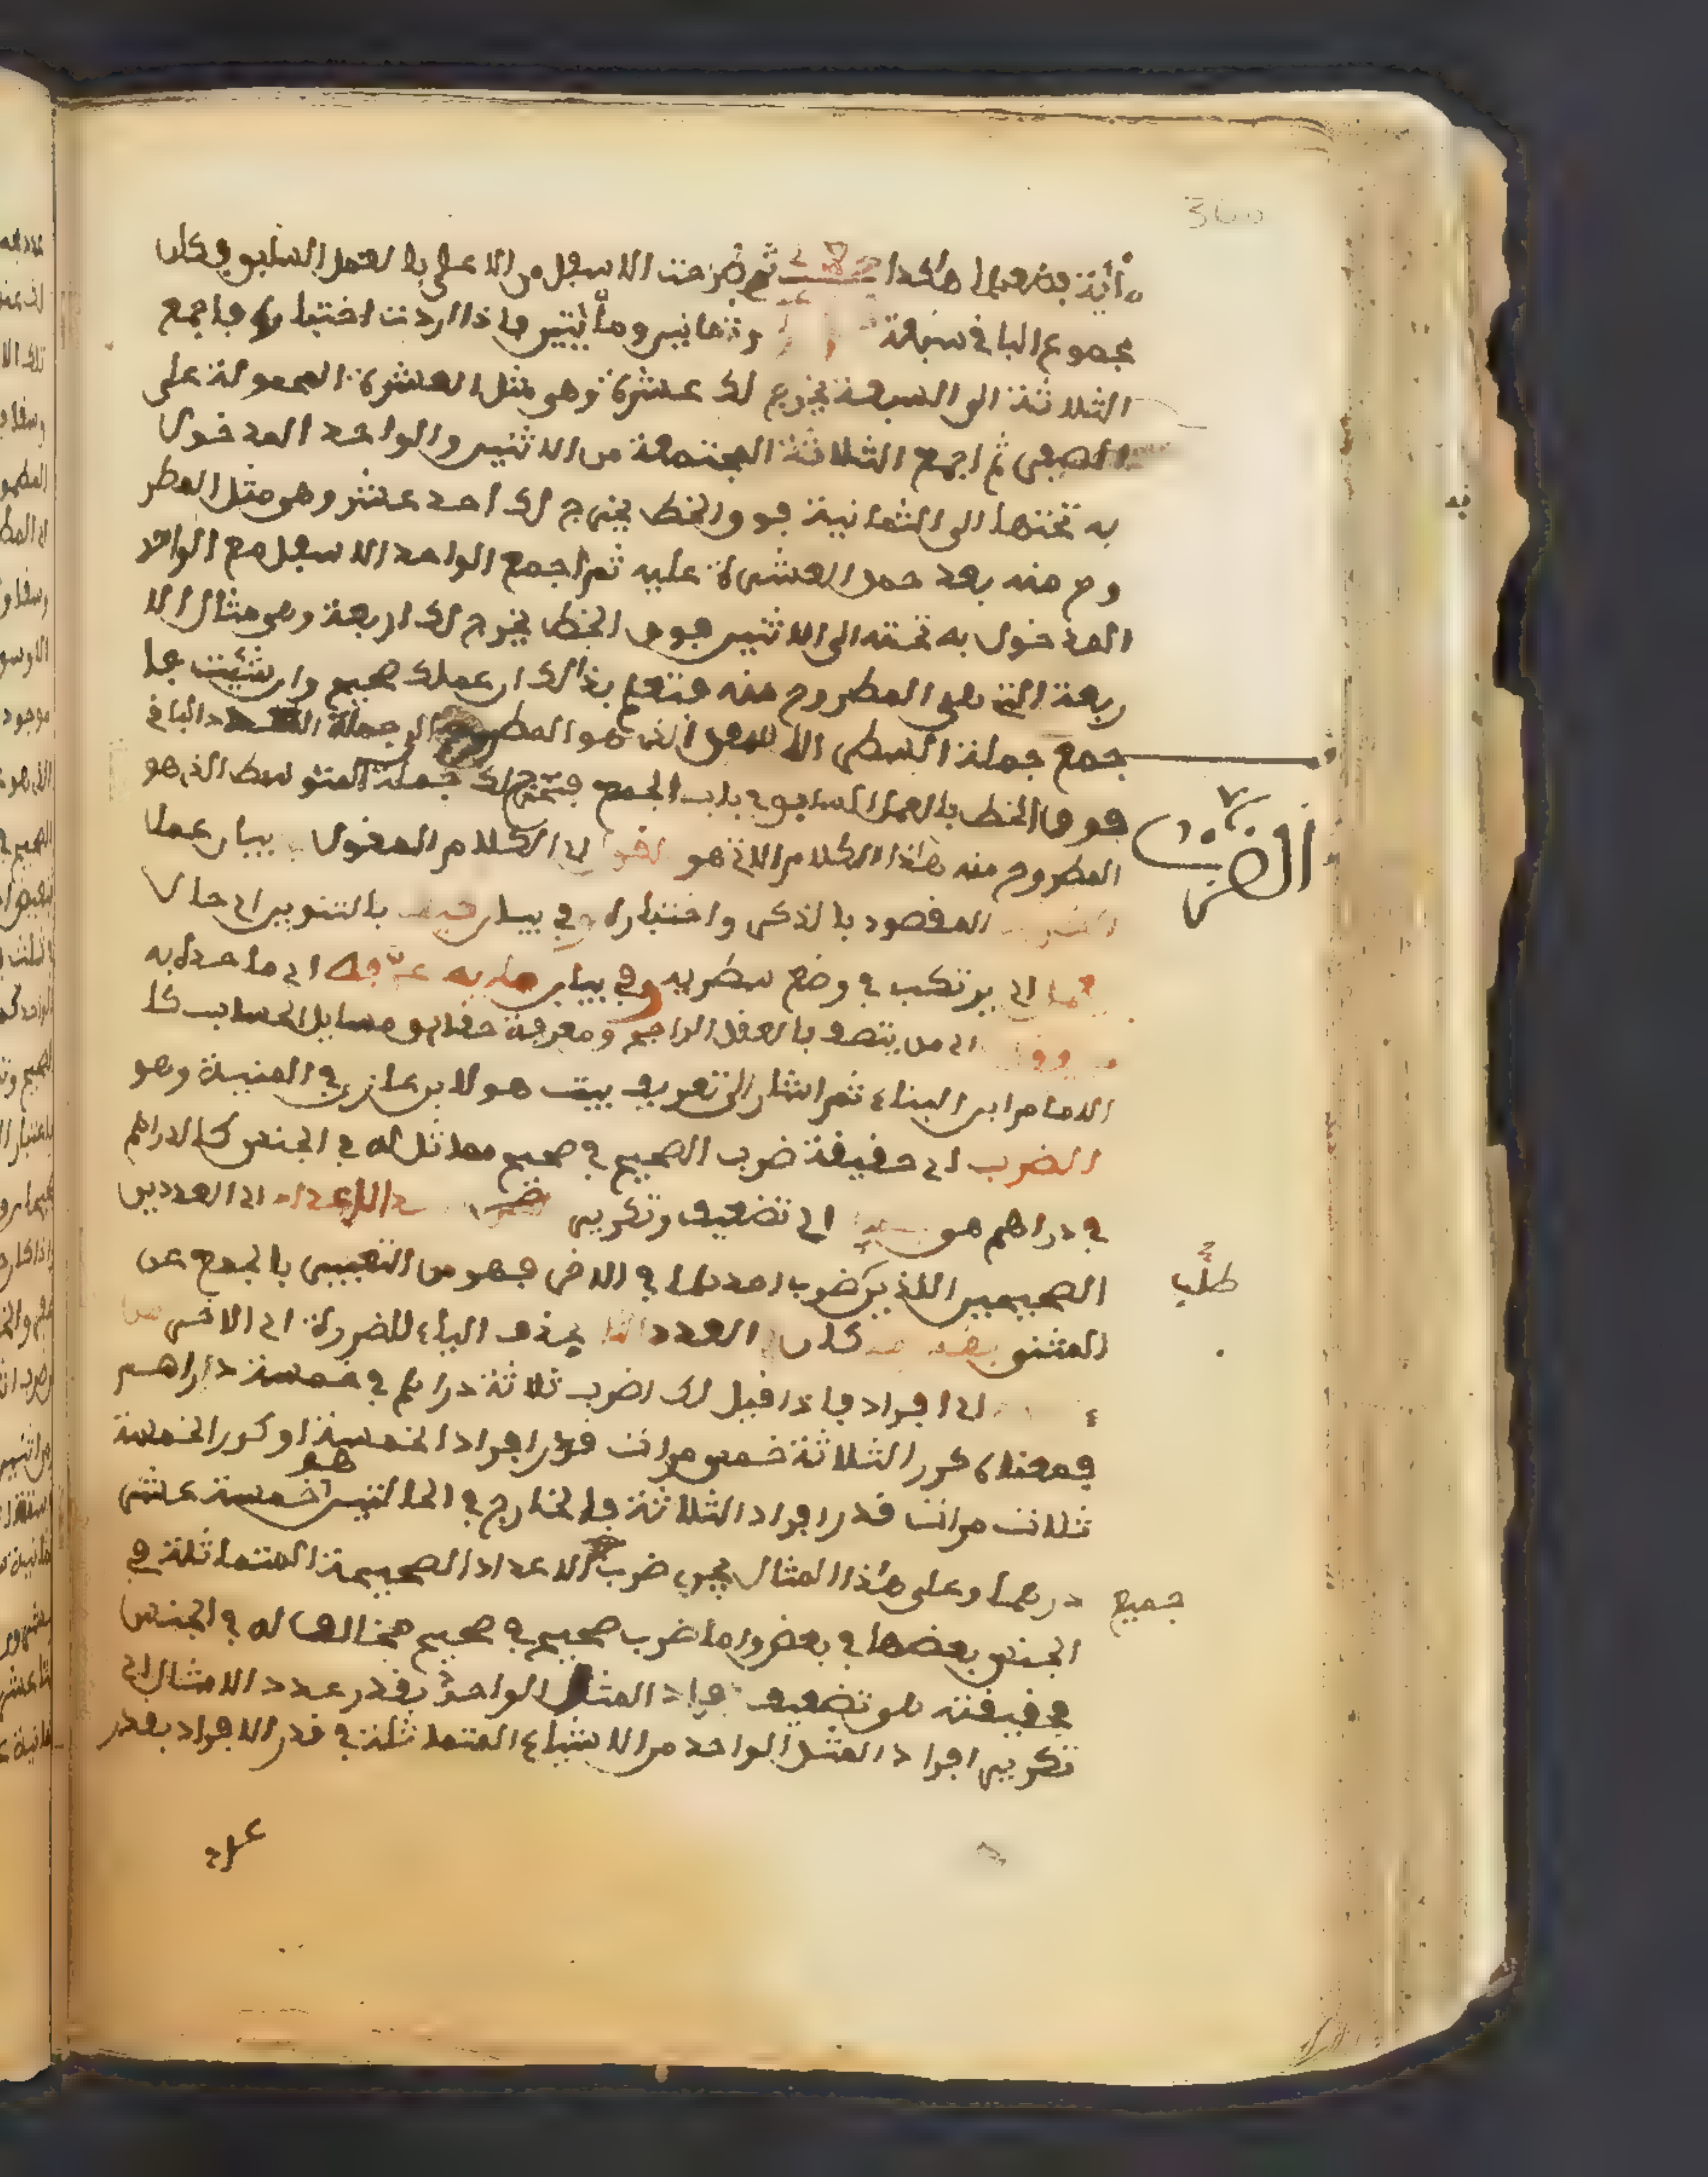 360
مأية فضعهما هاكذا ثم طرحت الاسفل من الاعلى بالعمل السابق فكان
مجموع الباقي سبعة وثمانين ومأيتين فاذا اردت اختباره فاجمع
الثلاثة الى السبعة يخرج لك عشرة وهو مثل العشرة المحمولة على
الصفر ثم اجمع الثلاثة المجتمعة من الاثنين والواحد المدخول
به تحتها الى الثمانية فوق الخط يخرج لك احد عشر وهو مثل المطر
وح منه بعد حمل العشرة عليه ثم اجمع الواحد الاسفل مع الواحد
المدخول به تحته الى الاثنين فوق الخط يخرج لك اربعة وهو مثال الا
ربعة التي هي المطروح منه فتعلم بذالك ان عملك صحيح وان شئت فا
جمع جملة السطر الاسفل الذي هو المطروح الى جملة الباقي
فوق الخط بالعمل السابق في باب الجمع فتخرج لك جملة المتوسط الذي هو
المطروح منه هاذا الكلام الاتي هو القول اي الكلام المقول في بيان عمل
الضرب
المقصود بالذكر واختباره وفي بيان بالتنوين اي حال
اي يرتكب في وضع سطريه وفي بيان ما به عرفه اي ما حده به
اي من يتصف بالعقل الراجح ومعرفة حقايق مسايل الحساب كا
الامام ابن البناء ثم اشار الى تعريفه ببيت هو لابن غازي في المنية وهو
الضرب اي حقيقة ضرب الصحيح في صحيح مماثل له في الجنس كالدراهم
في دراهم هو اي تضعيف وتكرير الاعداد اي العددين
الصحيحين اللذين ضرب احدهما في الاخر فهو من التعبير بالجمع عن
طلب
المثنى كان العدد بحذف الياء للضرورة اي الاخر من
اي افراد فاذا قيل لك اضرب ثلاثة دراهم في خمسة داراهم
فمعناه كرر الثلاثة خمس مرات قدر افراد الخمسة او كرر الخمسة
ثلاث مرات قدر افراد الثلاثة فالخارج في الحالتين هو خمسة عشر
درهما وعلى هاذا المثال يجري ضرب جميع الاعداد الصحيحة المتماثلة في
الجنس بعضها في بعض واما ضرب صحيح في صحيح مخالف له في الجنس
فحقيقته هو تضعيف افراد المثل الواحد بقدر عدد الامثال اي
تكرير افراد المثل الواحد من الاشياء المتماثلة في قدر الافراد بقدر
عدد